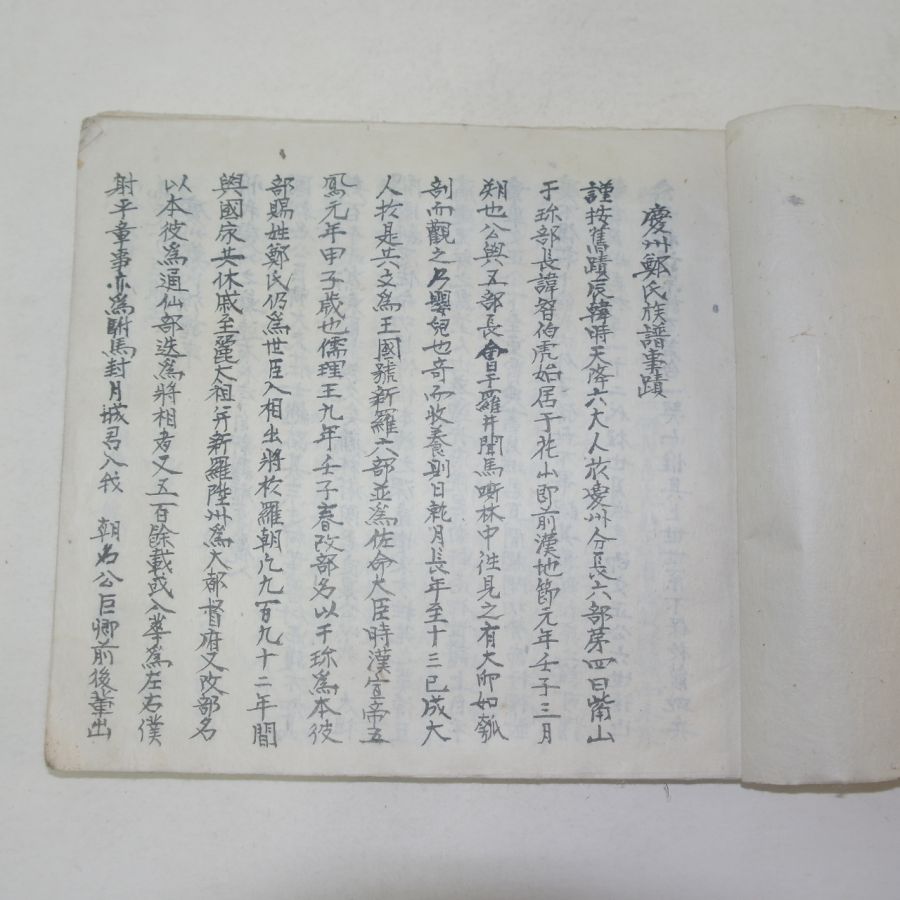 慶州鄭氏族譜事蹟
謹按舊蹟辰韓時天降六大人於慶州分長六部第四曰觜山
于珍部長諱智伯虎始居于花山即前漢地節元年壬子三月
朔也公與五部長會皁羅井聞馬嘶林中往見之有大卵如瓠
剖而觀之乃嬰兒也奇而收養則日就月長年至十三已成大
人於是共立爲王國號新羅六部並爲佐命大臣時漢宣帝五
鳳元年甲子歲也儒理王九年壬子春改部名以干珍爲本彼
部賜姓鄭氏仍爲世臣入相出將於羅朝凡九百九十二年間
與國家共休戚至麗太祖幷新羅陞州爲大都督府又改部名
以本彼爲通仙部迭爲將相者又五百餘載或入擧爲左右僕
射平章事亦爲駙馬封月城君入我 朝名公巨卿前後輩出